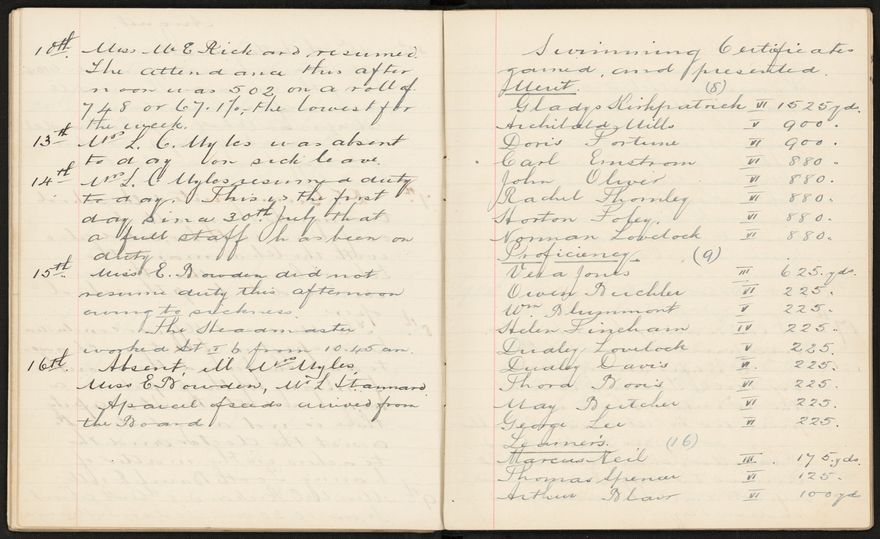 10th. Miss M E Rickard resumed.
The attendance this after
noon was 502 on a roll of
748 or 67.1%, the lowest for
the week.
13th Mrs L. C. Myles was absent
to day on sick leave.
14th Mrs L. C Myles resumed duty
to day. This is the first
day since 30th July that
a full staff has been on
duty.
15th. Miss E. Bowden did not
resume duty this afternoon
owing to sickness.
The Headmaster
worked St I 6 from 10.45 am.
16th. Absent, Mrs Myles,
Miss E Bowden, Mr L Stannard.
A parcel of seeds arrived from
the Board
Swimming Certificates
gained, and presented.
Merit. (8)
Gladys Kirkpatrick VI 1525 yds.
Archibald Mills V 900.
Doris Fortune VI 900.
Carl Ernstrom VI 880.
John Oliver VI 880.
Rachel Thornley VI 880.
Horton Foley. VI 880.
Norman Lovelock VI 880.
Proficiency. (9)
Vera Jones III 625. yds.
Owen Buchler VI 225.
Wm Blummont V 225.
Helen Fincham IV 225.
Dudley Lovelock V 225.
Dudley Davis VI. 225.
Thora Booris VI 225.
May Butcher VI 225.
George Lee VI 225.
Learner's. (16)
Marcus Neil III. 175. yds.
Thomas Spencer VI 125.
Arthur Blair VI 100 yd